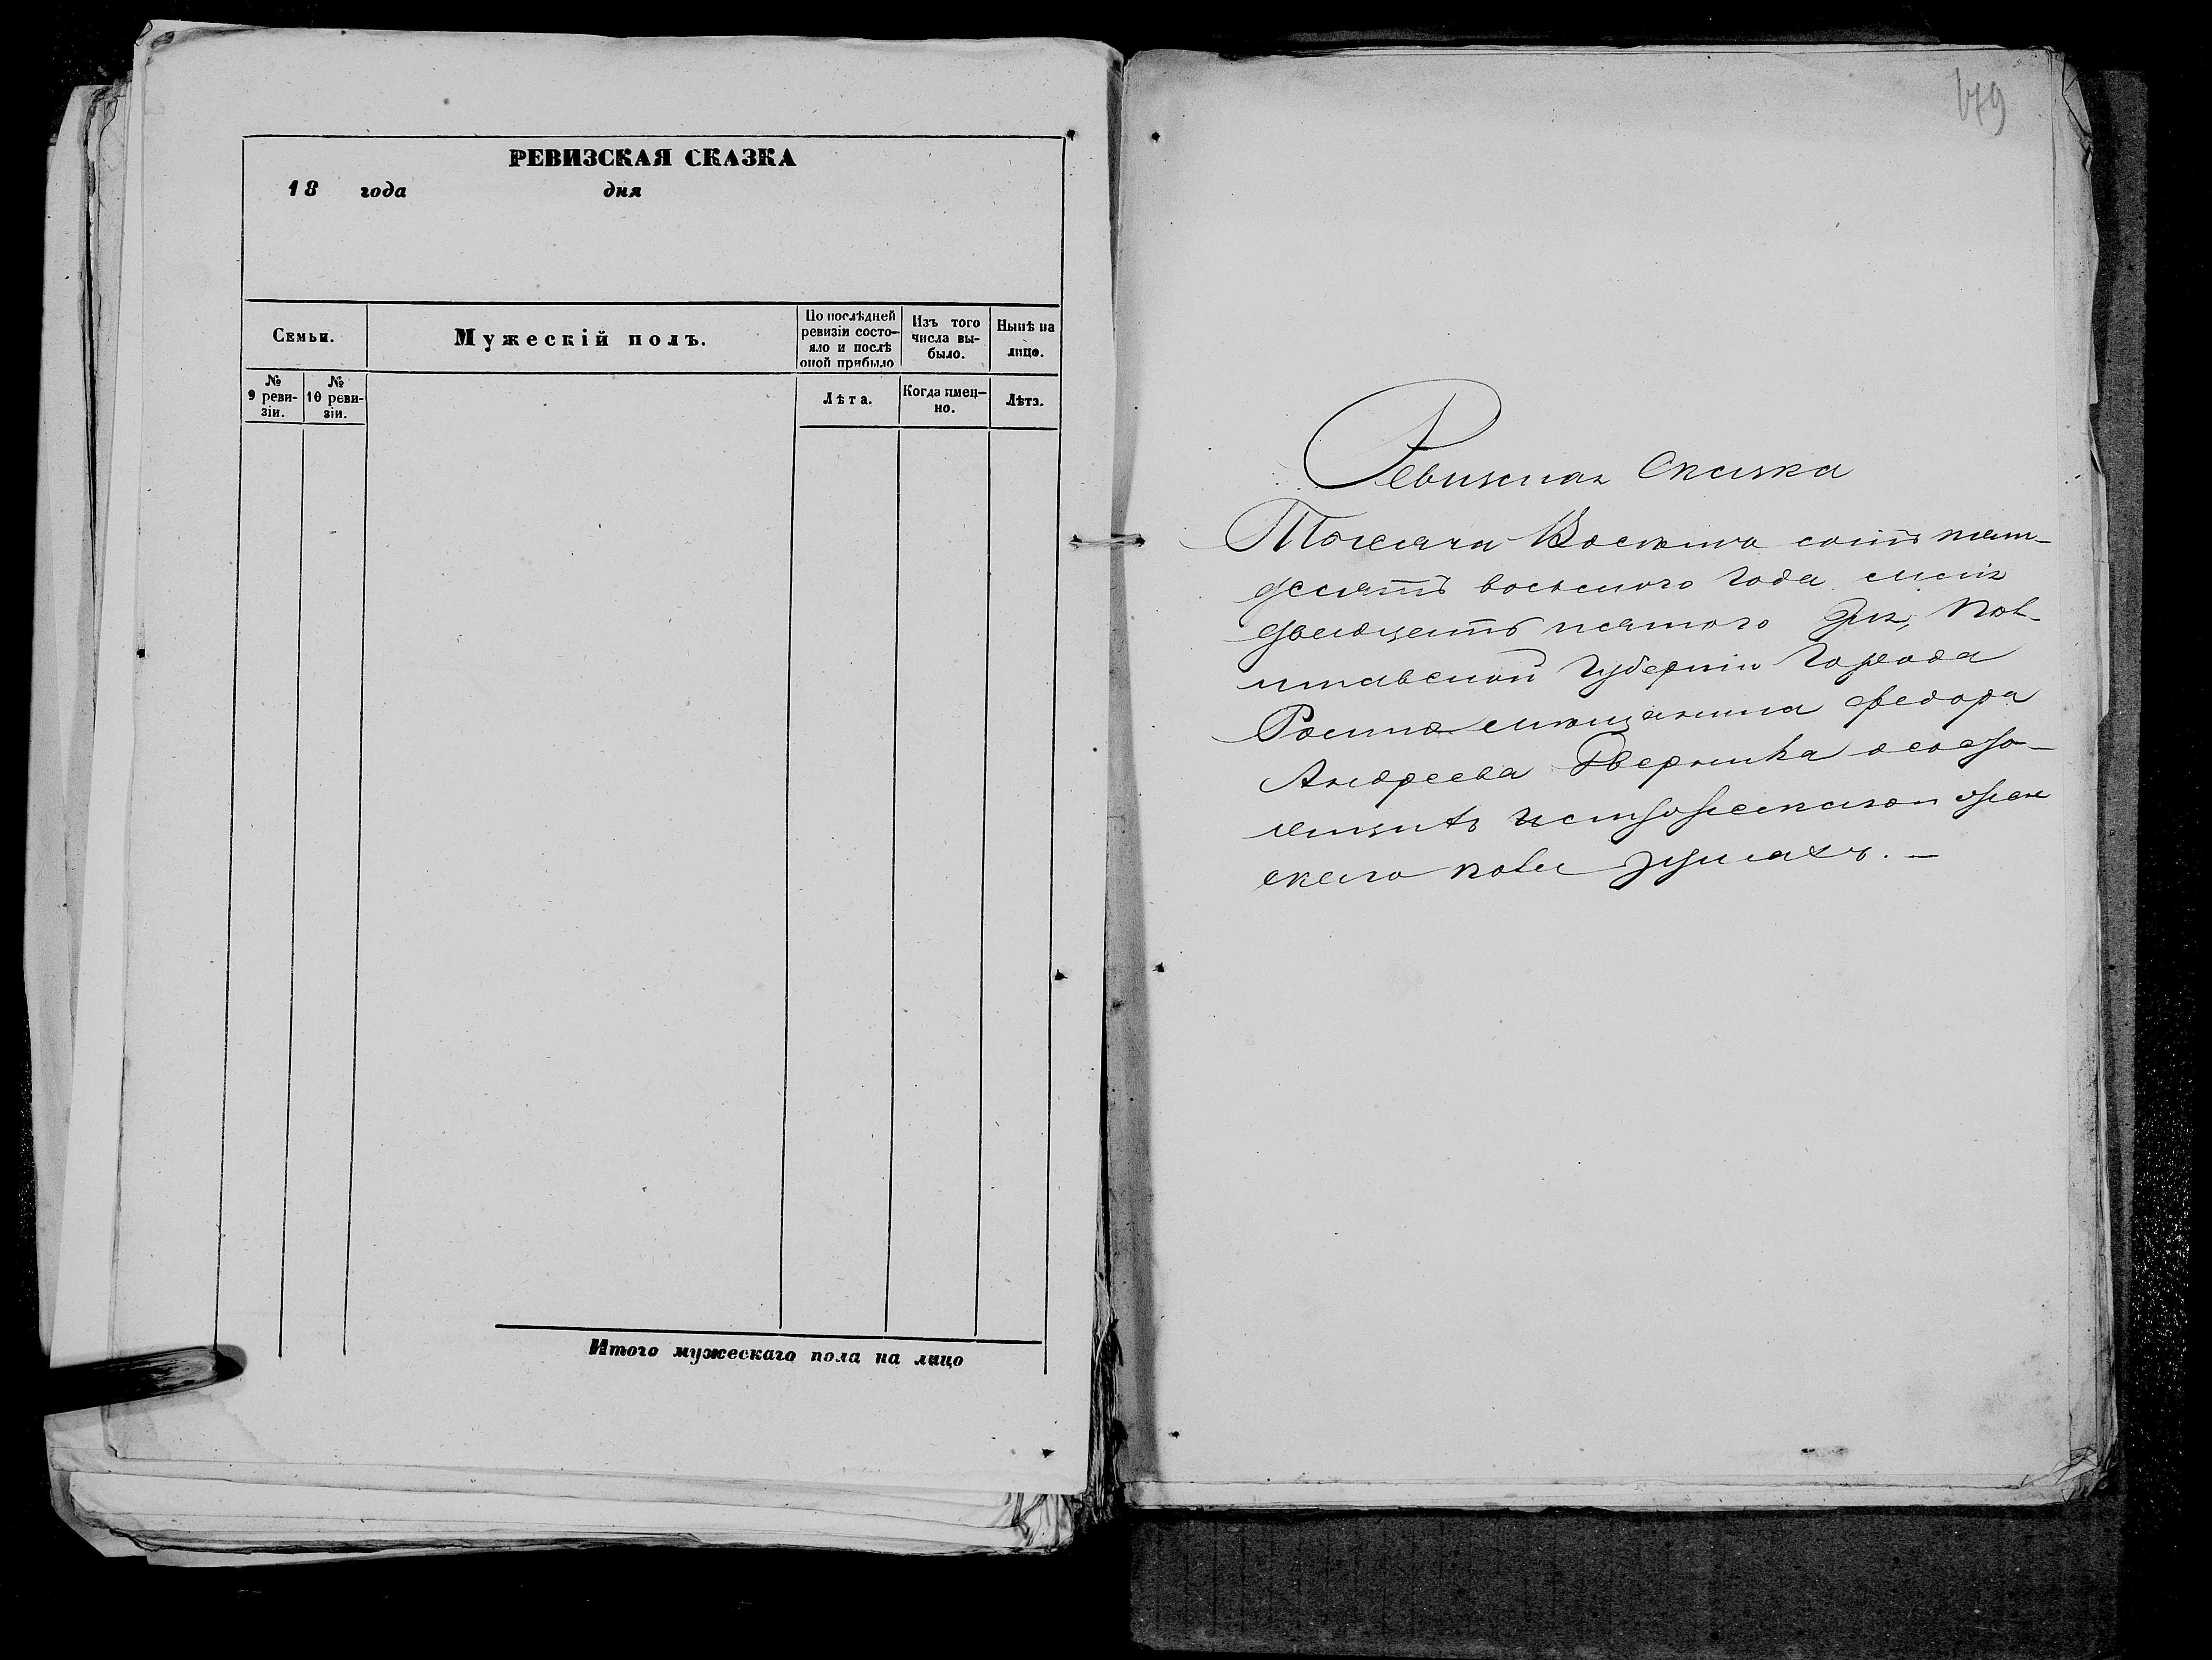 РЕВИЗСКАЯ СКАЗКА
18 года дня
Семьи.
Мужескій полъ.
По послѣдней
ревизіи состо-
яло и послѣ
оной прибыло
Изъ того
числа вы-
было.
Нынѣ на
лицо.
№
9 реви-
зіи.
№
10 реви-
зіи.
Лѣта.
Когда имен-
но.
Лѣта.
Итого мужескаго пола на лицо
179
Ревизская Сказка
Тысяча Восемь сотъ пять-
десятъ восьмого года маія
двадцать пятого дня, Пол-
тавской Губерніи Города
Ромна мещанина Федора
Андреева о
скаго пола душахъ. —